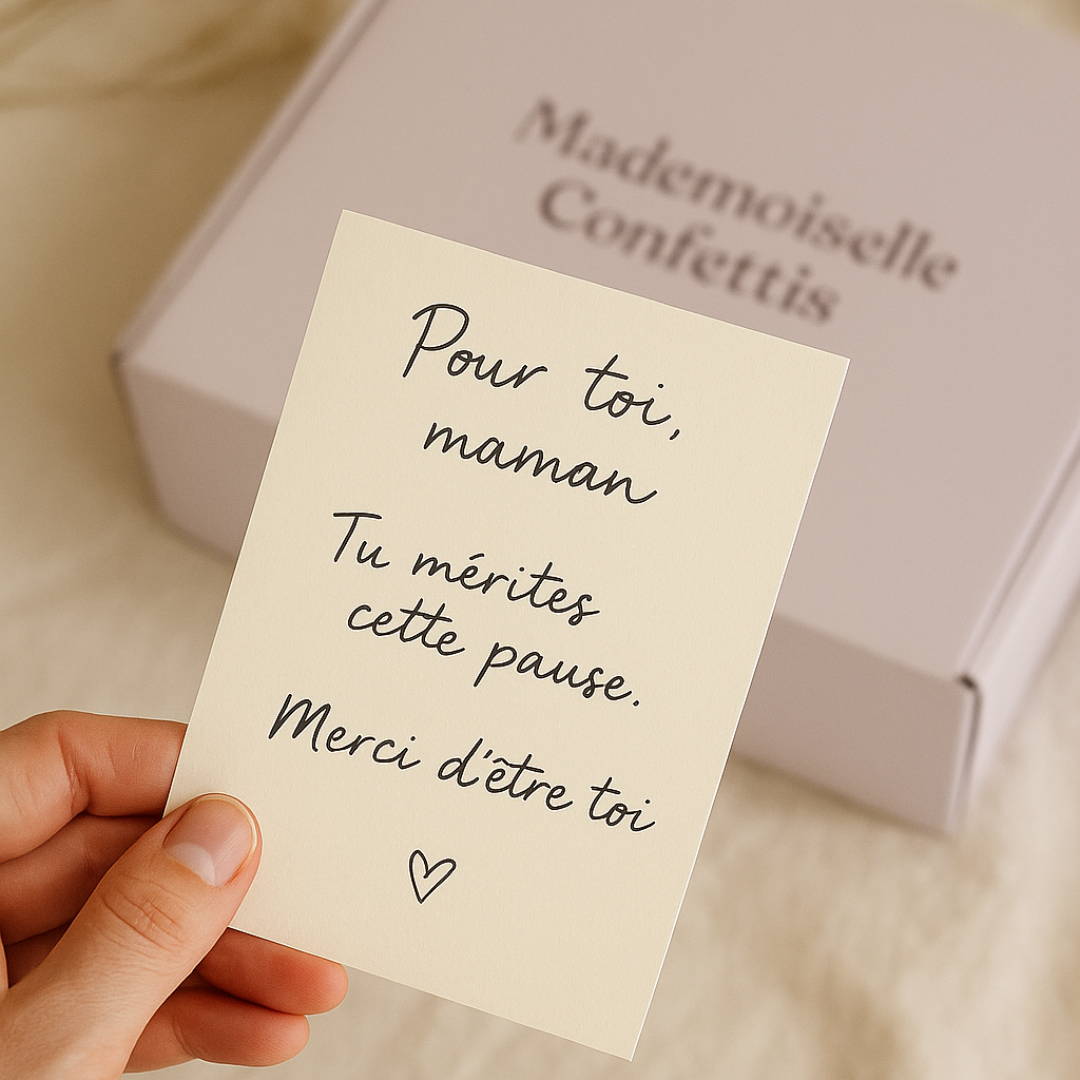 Mademoiselle
Confettis
Pour toi,
maman
Tu mérites
cette pause.
Merci d'être toi